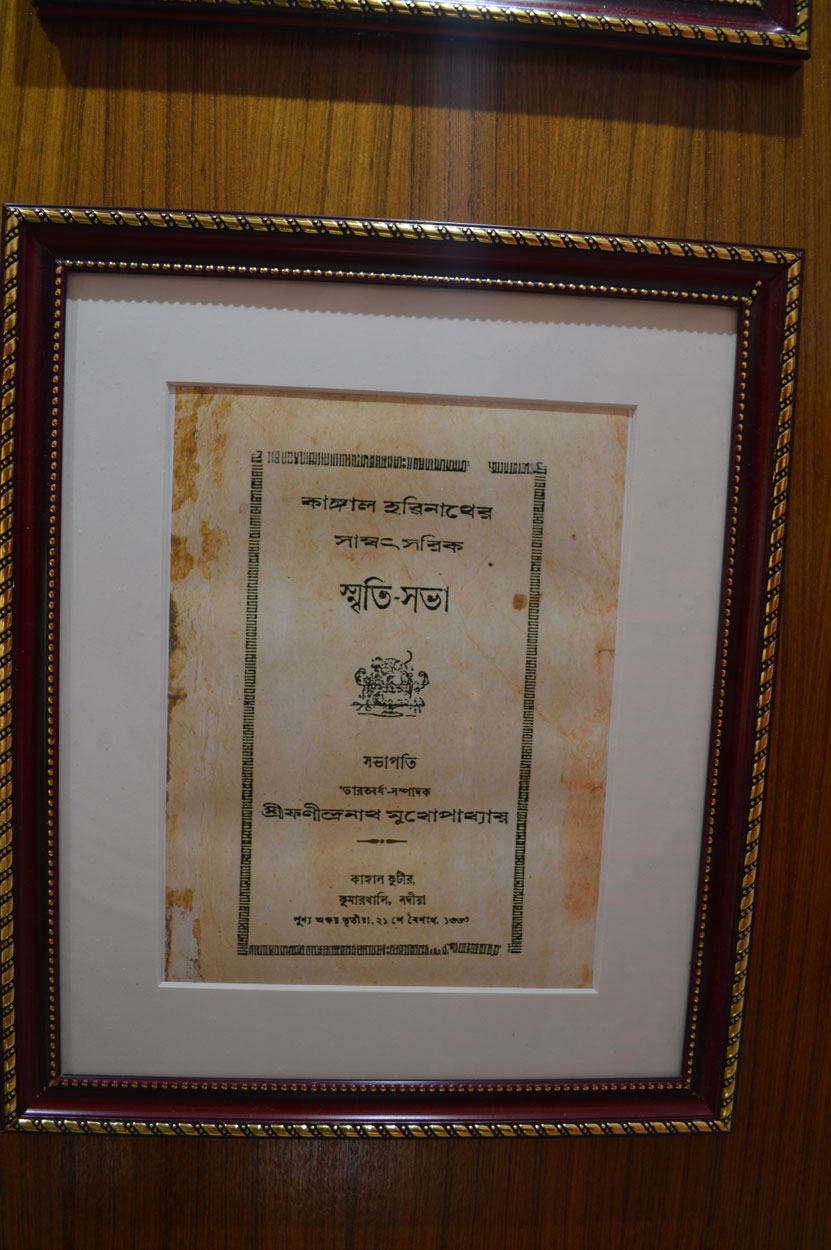 কাঙ্গাল হরিনাথের
সাম্বৎসরিক
স্মৃতি-সভা
সভাপতি
'ভারতবর্ষ'-সম্পাদক
শ্রীফণীন্দ্রনাথ মুখোপাধ্যায়
কাঙ্গাল কুটীর,
কুমারখালি, নদীয়া
পুণ্য অক্ষয় তৃতীয়া, ২১ শে বৈশাখ,